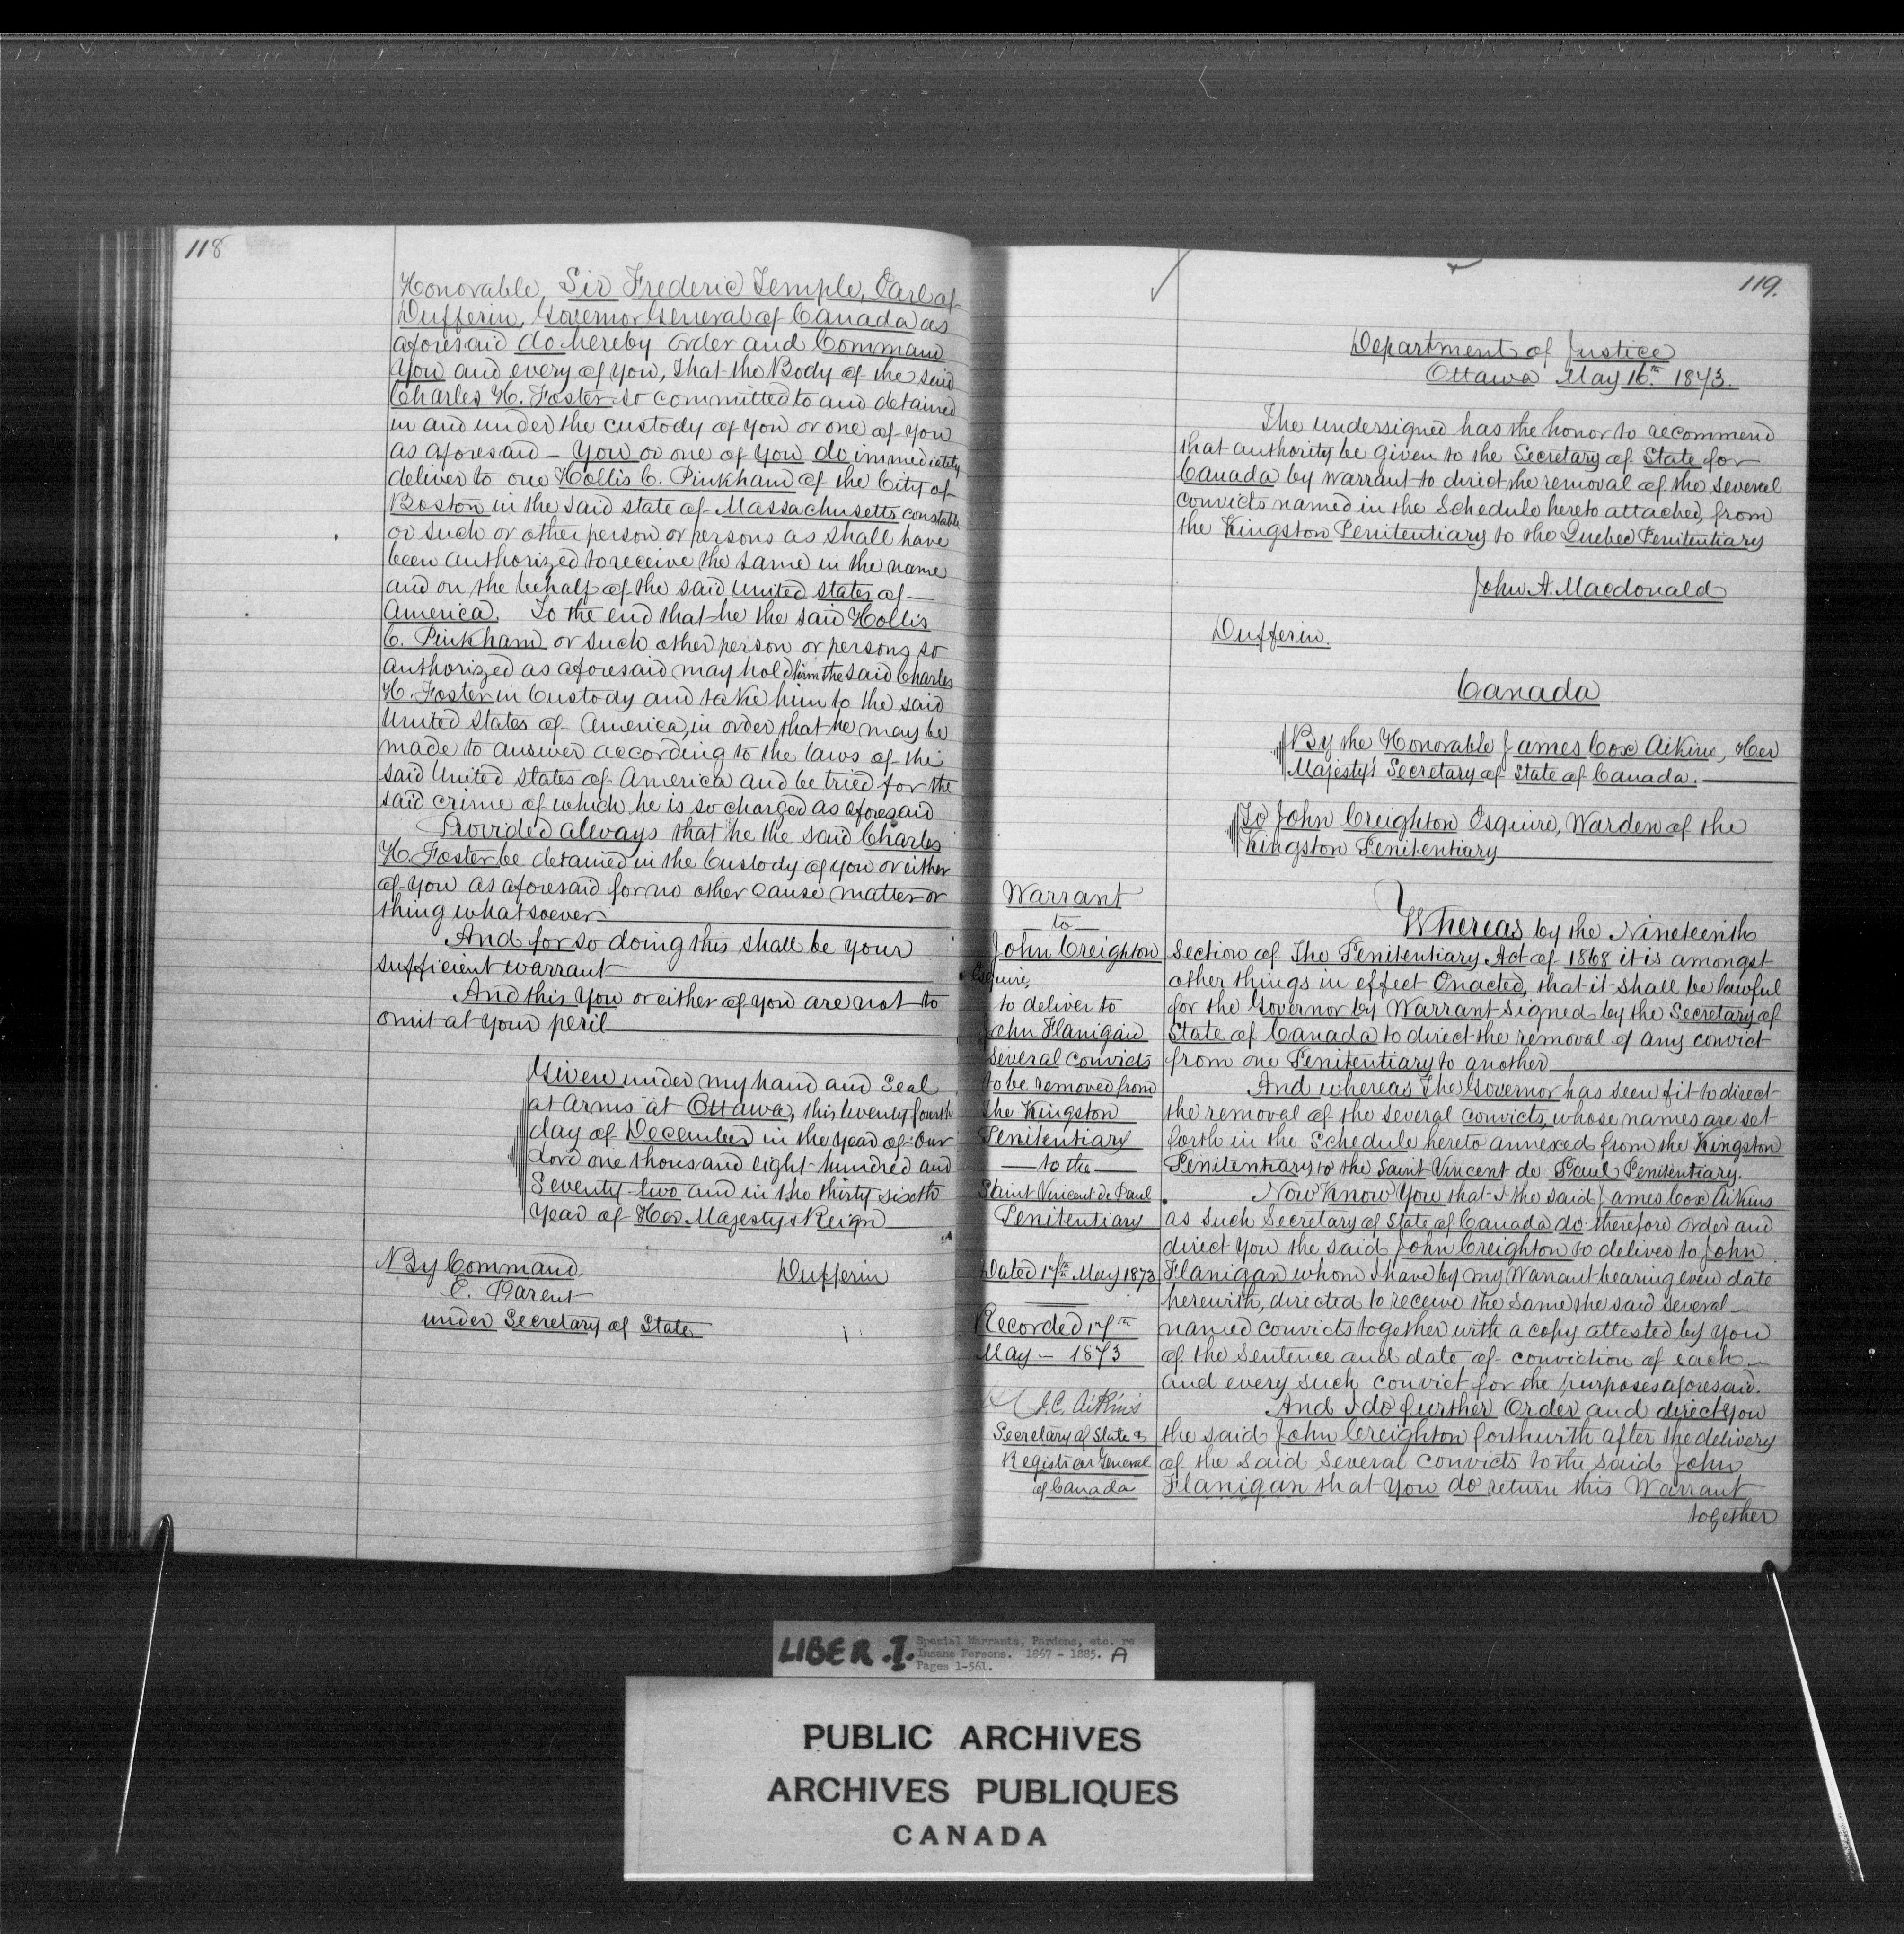 118
Honorable, Sir Frederic Temple, Earl of
Dufferin, Governor General of Canada as
aforesaid do hereby order and Command
You and every of you, that the Body of the said
Charles H. Foster so committed to and detained
in and under the custody of you or one of you
as aforesaid – You or one of you do immediately
deliver to one Hollis C. Pinkham of the City of
Boston in the said state of Massachusetts constable
or such or other person or persons as shall have
been authorized to receive the same in the name
and on the behalf of the said United States of —
America. To the end that he the said Hollis
C. Pinkham or such other person or persons so
authorized as aforesaid may hold him the said Charles
H. Foster in Custody and take him to the said
United States of America, in order that he may be
made to answer according to the laws of the
said United States of America and be tried for the
said crime of which he is so charged as aforesaid
Provided always that he the said Charles
H. Foster be detained in the Custody of you or either
of you as aforesaid for no other cause matter or
thing whatsoever
And for so doing this shall be your
sufficient warrant
And this You or either of you are not to
omit at your peril
Given under my hand and Seal
at Arms at Ottawa, this twenty fourth
day of December in the year of Our
Lord one thousand eight hundred and
Seventy-two and in the thirty sixth
Year of Her Majesty's Reign
By Command. Dufferin
E. Parent
under Secretary of State
119.
Department of Justice
Ottawa May 16th 1873.
The undersigned has the honor to recommend
that authority be given to the Secretary of State for
Canada by warrant to direct the removal of the several
convicts named in the Schedule hereto attached, from
the Kingston Penitentiary to the Quebec Penitentiary
John A. Macdonald
Dufferin.
Canada
By the Honorable James Cox Aikins, Her
Majesty's Secretary of State of Canada.
To John Creighton Esquire, Warden of the
Kingston Penitentiary
Warrant
to
John Creighton
Esquire,
to deliver to
John Flanigan
several convicts
to be removed from
the Kingston
Penitentiary
— to the —
Saint Vincent de Paul
Penitentiary
Dated 17th May 1873
Recorded 17th
May – 1873
J.C. Aikins
Secretary of State &
Registrar General
of Canada
Whereas by the Nineteenth
Section of The Penitentiary Act of 1868 it is amongst
other things in effect Enacted, that it shall be lawful
for the Governor by Warrant signed by the Secretary of
State of Canada to direct the removal of any convict
from one Penitentiary to another
And whereas The Governor has seen fit to direct
the removal of the several convicts, whose names are set
forth in the Schedule hereto annexed from the Kingston
Penitentiary to the Saint Vincent de Paul Penitentiary.
Now Know You that I the said James Cox Aikins
as such Secretary of State of Canada do therefore order and
direct you the said John Creighton to deliver to John
Flanigan whom I have by my Warrant bearing even date
herewith, directed to receive the same the said several —
named convicts together with a copy attested by you
of the Sentence and date of conviction of each —
and every such convict for the purposes aforesaid.
And I do further Order and direct you
the said John Creighton forthwith after the delivery
of the said several convicts to the said John
Flanigan that you do return this Warrant
together
LIBER.I. Special Warrants, Pardons, etc. re
Insane Persons. 1867 - 1885. A
Pages 1-561.
PUBLIC ARCHIVES
ARCHIVES PUBLIQUES
CANADA